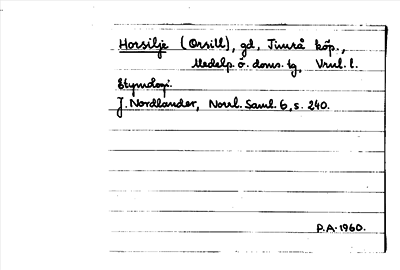 Horsilje (Orsill), gd, Timrå köp.,
Medelp. ö. doms. tg, Vnrl. l.
Etymologi.
J. Nordlander, Norrl. Saml. 6, s. 240.
P.A. 1960.